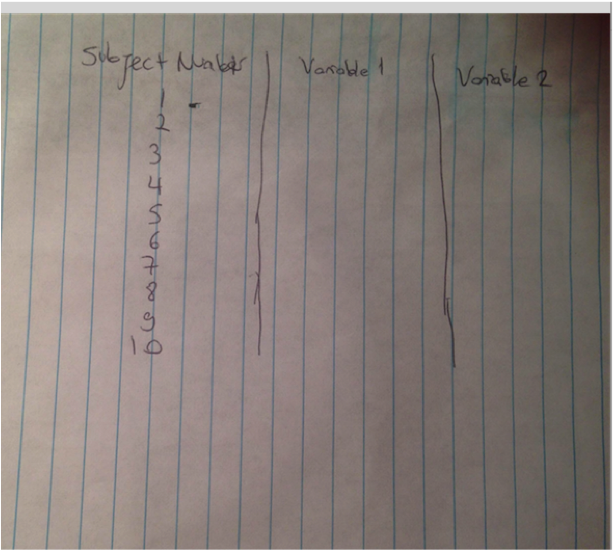 Subject Number Variable 1 Variable 2
1
2
3
4
5
6
7
8
9
10